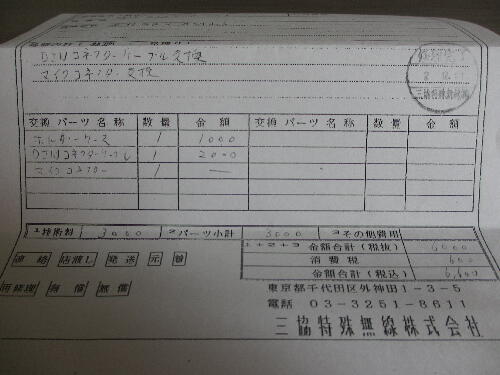 DSUコネクターケーブル交換
マイクコネクター交換
三協特殊無線㈱
交換パーツ名称 数量 金額 交換パーツ名称 数量 金額
ホルダーケース 1 1000
DSUコネクターケーブル 1 2000
マイクコネクター 1 —
1技術料 3000 2パーツ小計 3000 3その他費用
1+2+3 金額合計(税抜) 6000
消費税 600
金額合計(税込) 6,600
連絡 店渡し 発送 元 着
再修理 有償 無償
東京都千代田区外神田1-3-5
電話 03-3251-8611
三協特殊無線株式会社